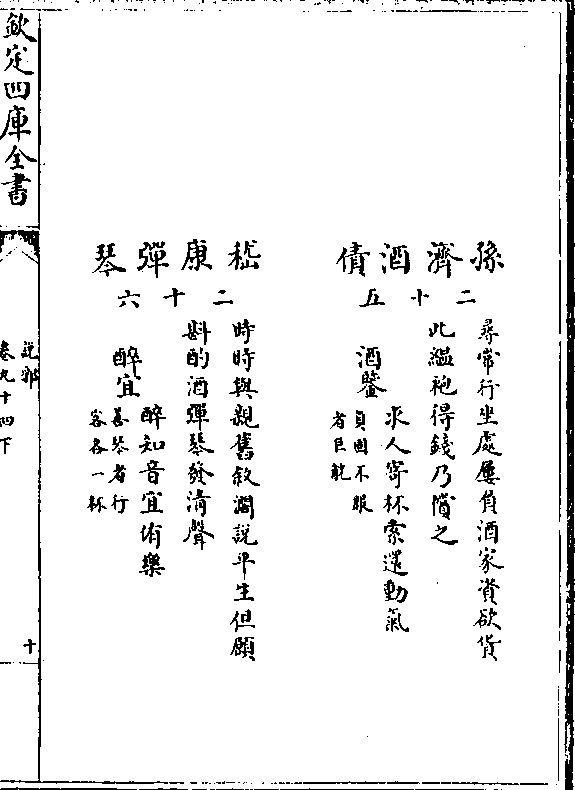 孫濟酒債
二十五
尋常行坐處屢負酒家資欲貨
此緼袍得錢乃償之
酒鑒
求人寄杯索還動氣
負固不服
者巨觥
嵇康彈琴
二十六
時時與親舊敘濶說平生但願
斟酌酒彈琴發清聲
醉宜
醉知音宜侑樂
善琴者行
客各一杯
欽定四庫全書
說郛
卷九十四下
十